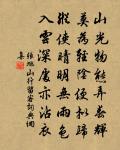 山光物態弄春輝
莫為輕陰便擬歸
縱使晴明無雨色
入雲深處亦沾衣
張旭山行留客詩詞典
集